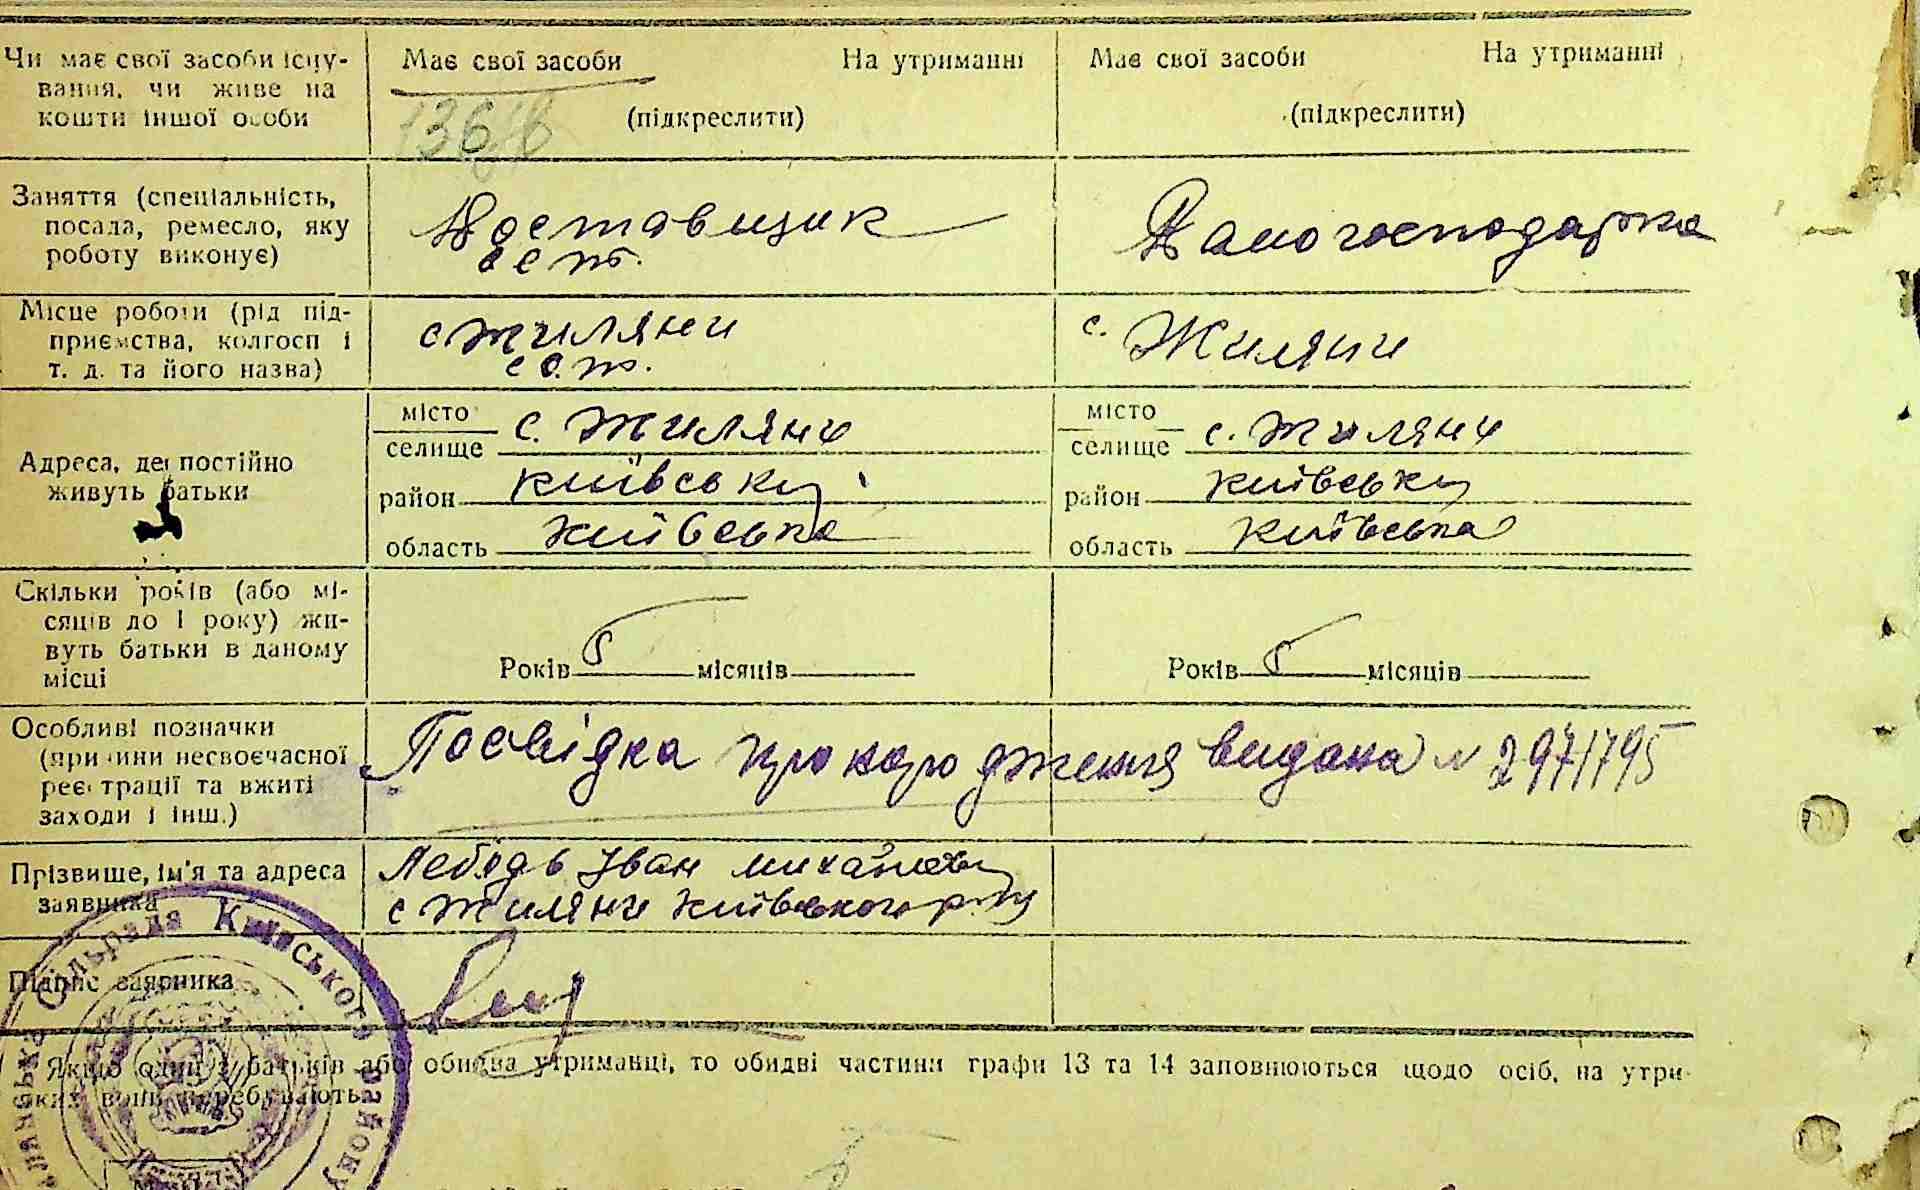 Чи має свої засоби існу-
вання, чи живе на
кошти іншої особи
Має свої засоби На утриманні
(підкреслити)
Має свої засоби На утриманні
(підкреслити)
Заняття (спеціальність,
посада, ремесло, яку
роботу виконує)
Доставщик
с с т.
Домогосподарка
Місце роботи (рід під-
приємства, колгосп і
т. д. та його назва)
с Жиляни
с с. т.
с. Жиляни
Адреса, де постійно
живуть батьки
місто
селище с. Жиляни
район Київський
область Київська
місто
селище с. Жиляни
район Київський
область Київська
Скільки років (або мі-
сяців до 1 року) жи-
вуть батьки в даному
місці
Років 5 місяців
Років 5 місяців
Особливі позначки
(причини несвоєчасної
реєстрації та вжиті
заходи і інш.)
Посвідка про народження видана № 2971795
Прізвище, ім'я та адреса
заявника
Лебідь Іван Михайлович
с Жиляни Київського р-ну
Підпис заявника
Якщо один з батьків або обидва утриманці, то обидві частини графи 13 та 14 заповнюються щодо осіб, на утри-
яких вони перебувають.
Сільрада Київського району